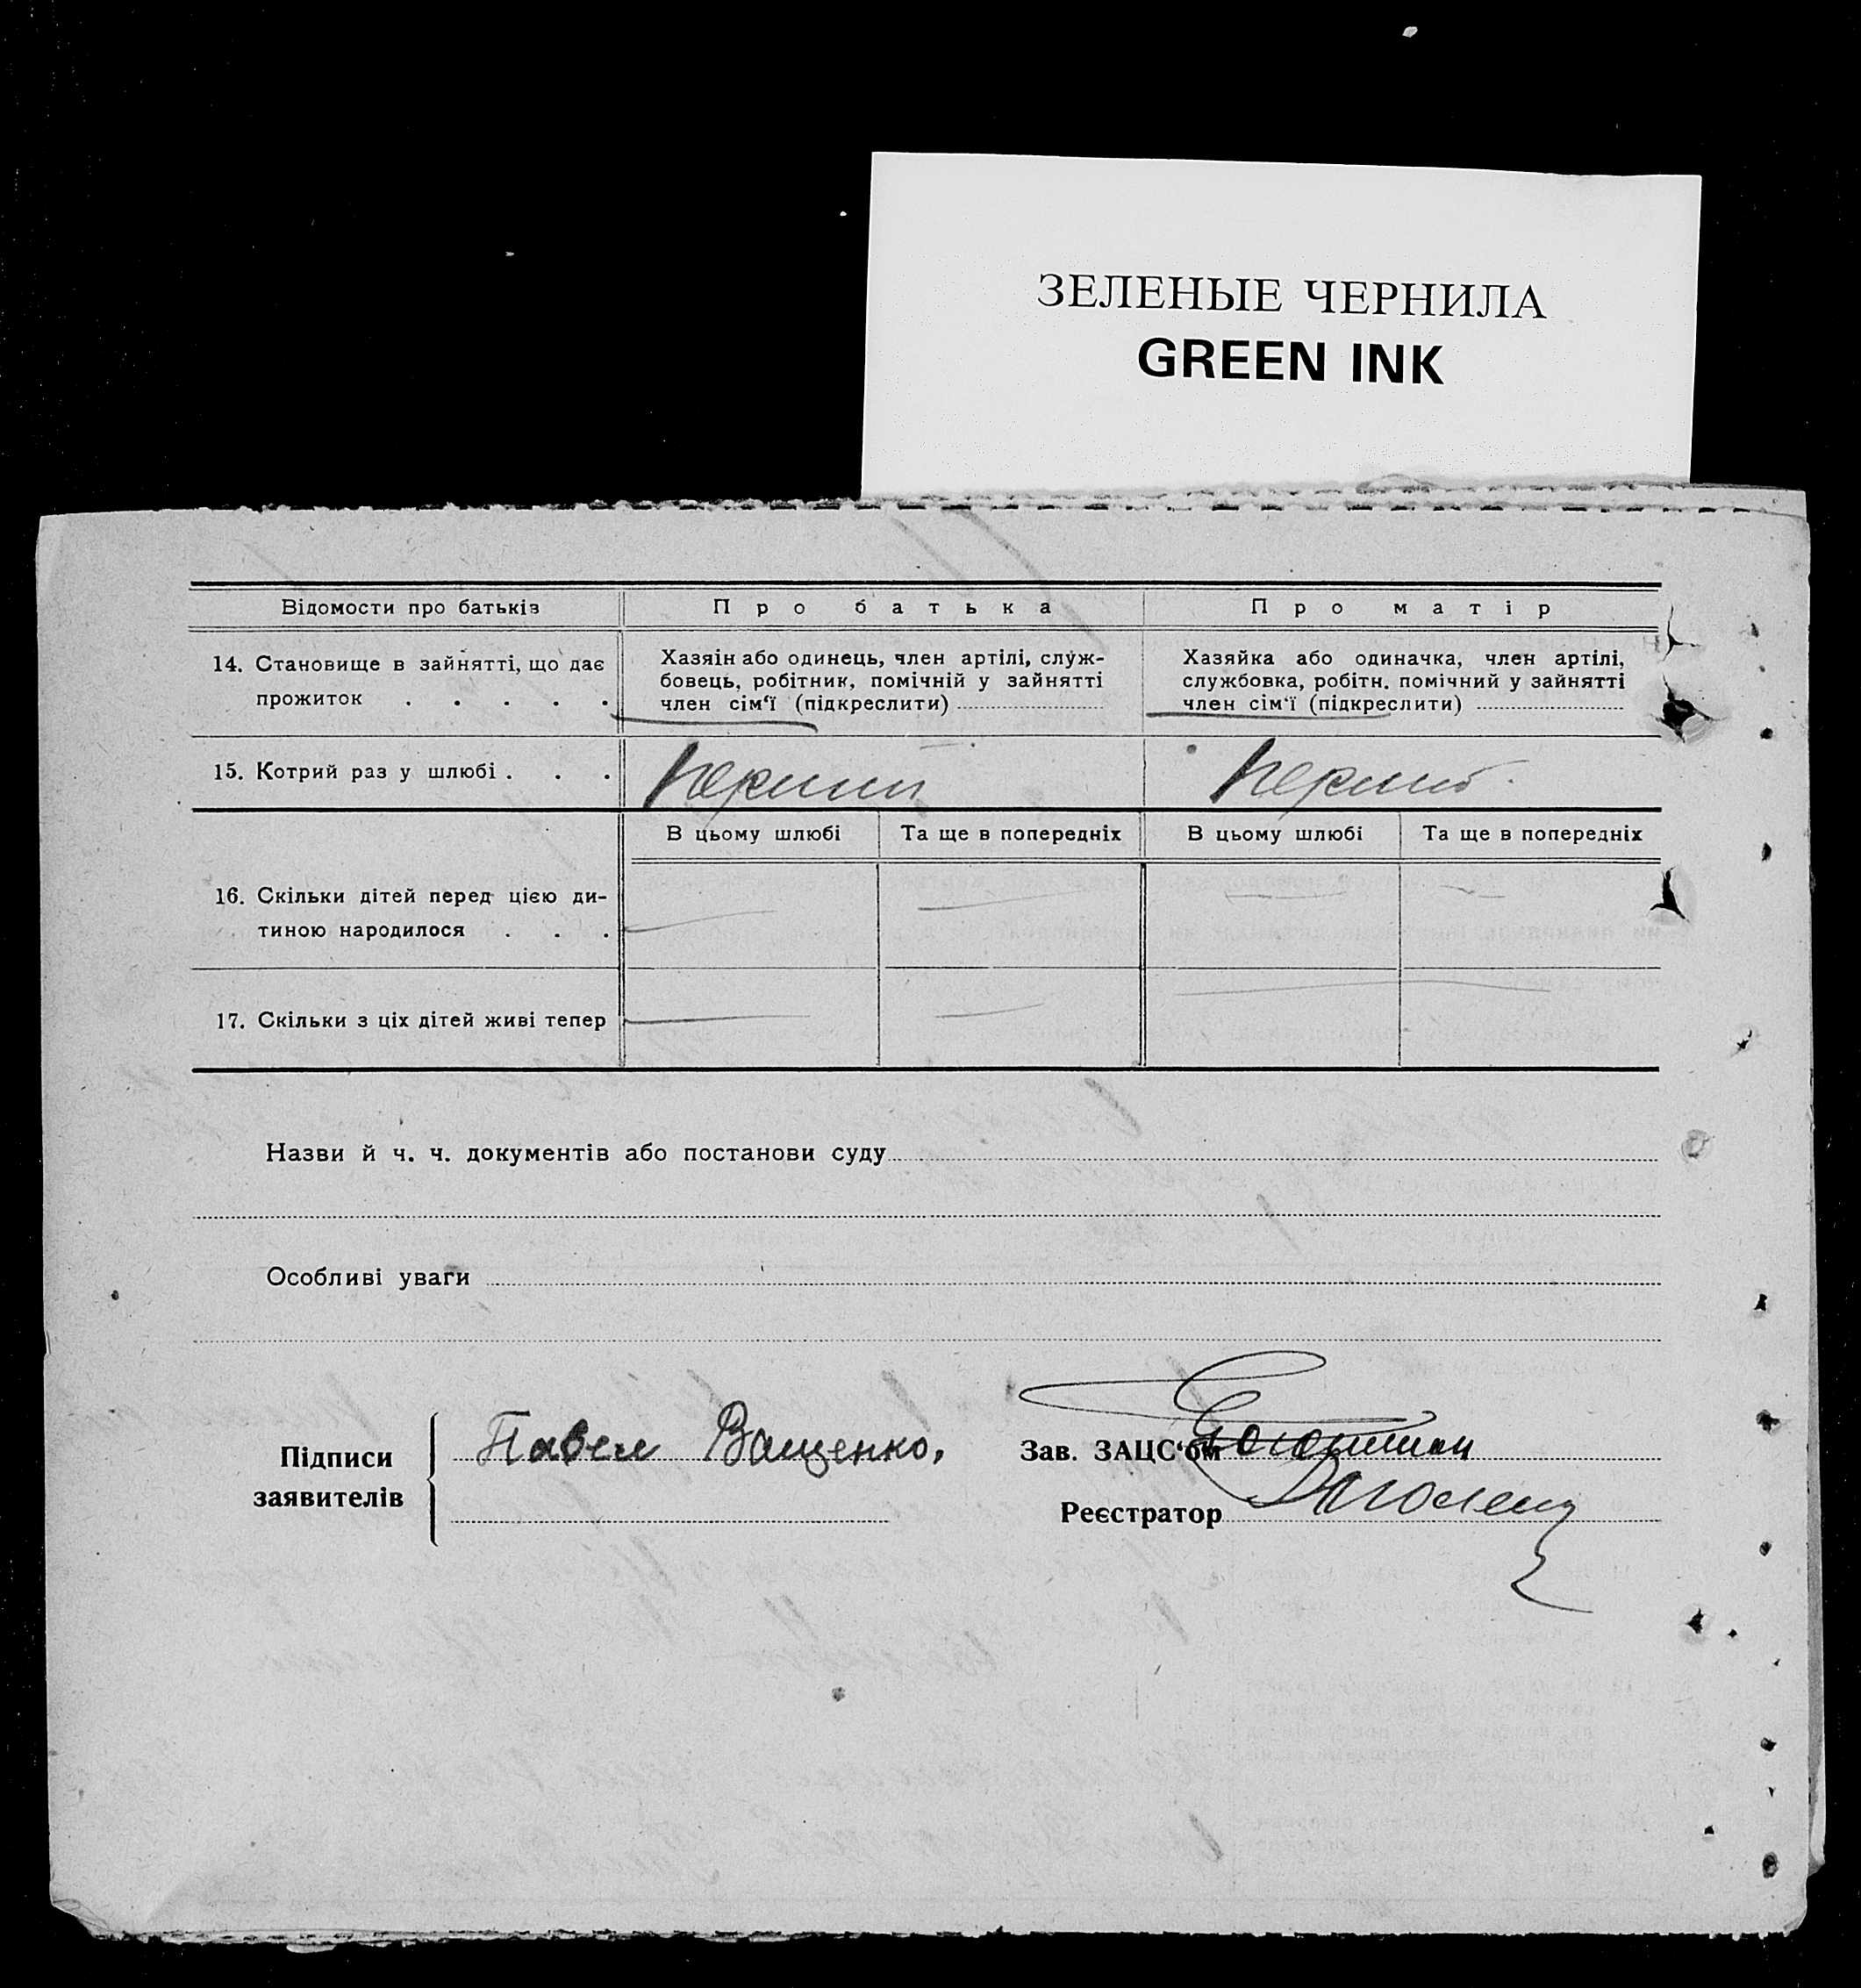 ЗЕЛЕНЫЕ ЧЕРНИЛА
GREEN INK
Відомости про батьків
Про батька
Про матір
14. Становище в зайнятті, що дає
прожиток . . . . .
Хазяін або одинець, член артілі, служ-
бовець, робітник, помічній у зайнятті
член сім‘ї (підкреслити)
Хазяйка або одиначка, член артілі,
службовка, робітн. помічний у зайнятті
член сім‘ї (підкреслити)
15. Котрий раз у шлюбі . . .
В цьому шлюбі
Та ще в попередніх
В цьому шлюбі
Та ще в попередніх
16. Скільки дітей перед цією ди-
тиною народилося . . .
17. Скільки з ціх дітей живі тепер
Назви й ч. ч. документів або постанови суду
Особливі уваги
Підписи
заявителів
Павел Ващенко.
Зав. ЗАЦС‘ом
Реєстратор